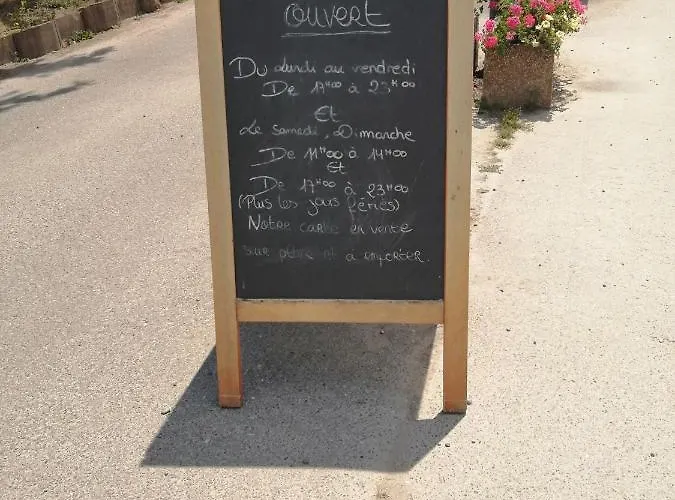 Ouvert
Du Lundi au vendredi
De 17H00 à 23H00
Et
Le Samedi, Dimanche
De 11H00 à 14H00
et
De 17H00 à 23H00
(Plus les jours fériés)
Notre carte en vente
sur place et à emporter.